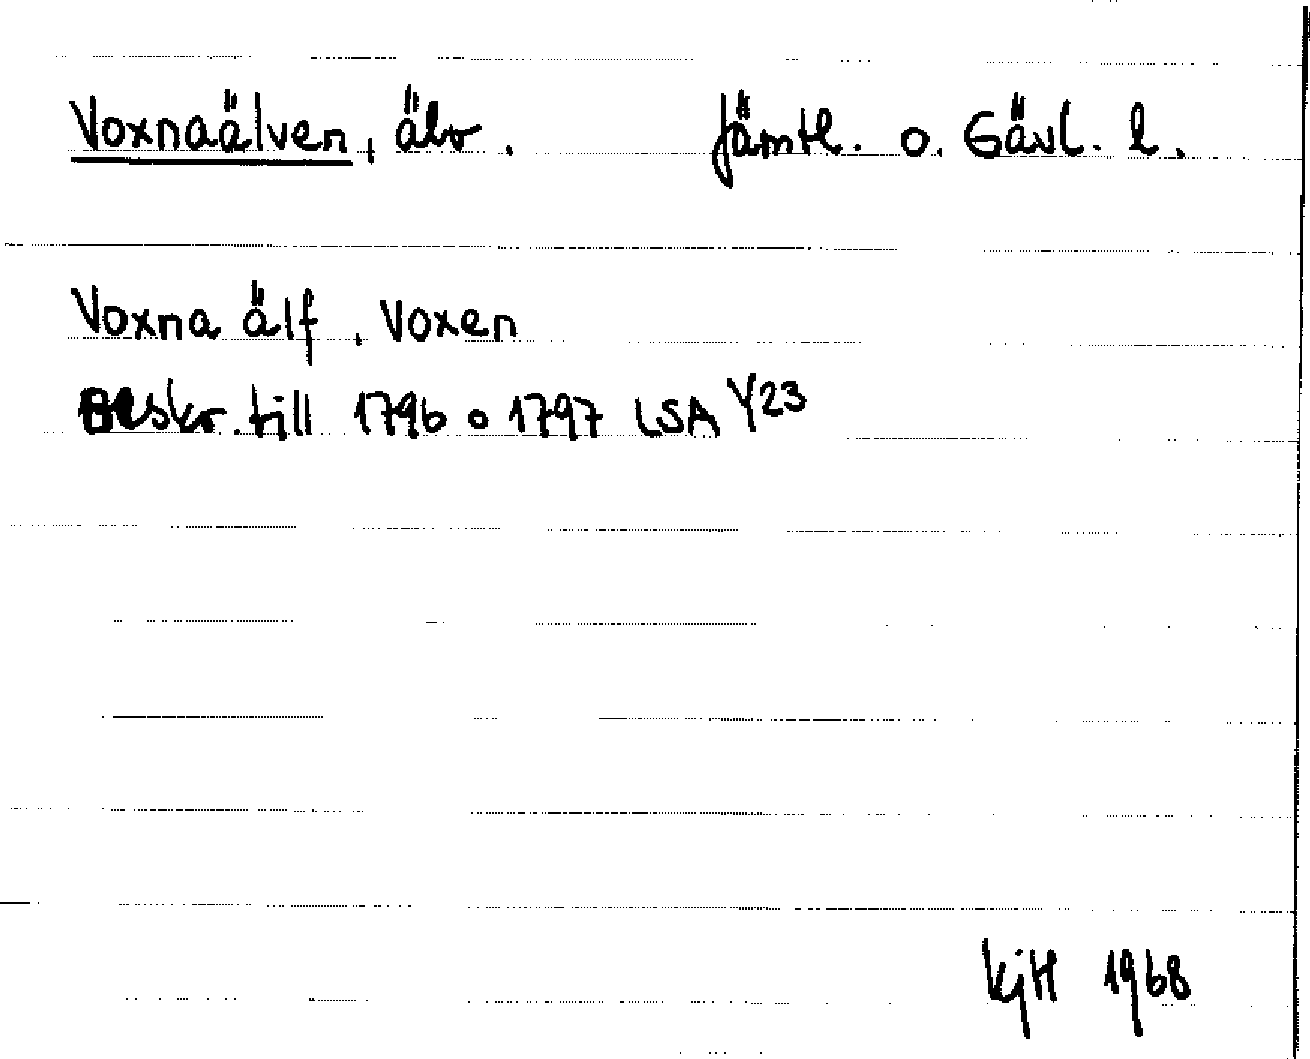 Voxnaälven, älv. Jämtl. o. Gävl. l.
Voxna älf, Voxen
Beskr. till 1796 o 1797 LSA Y23
KjH 1968